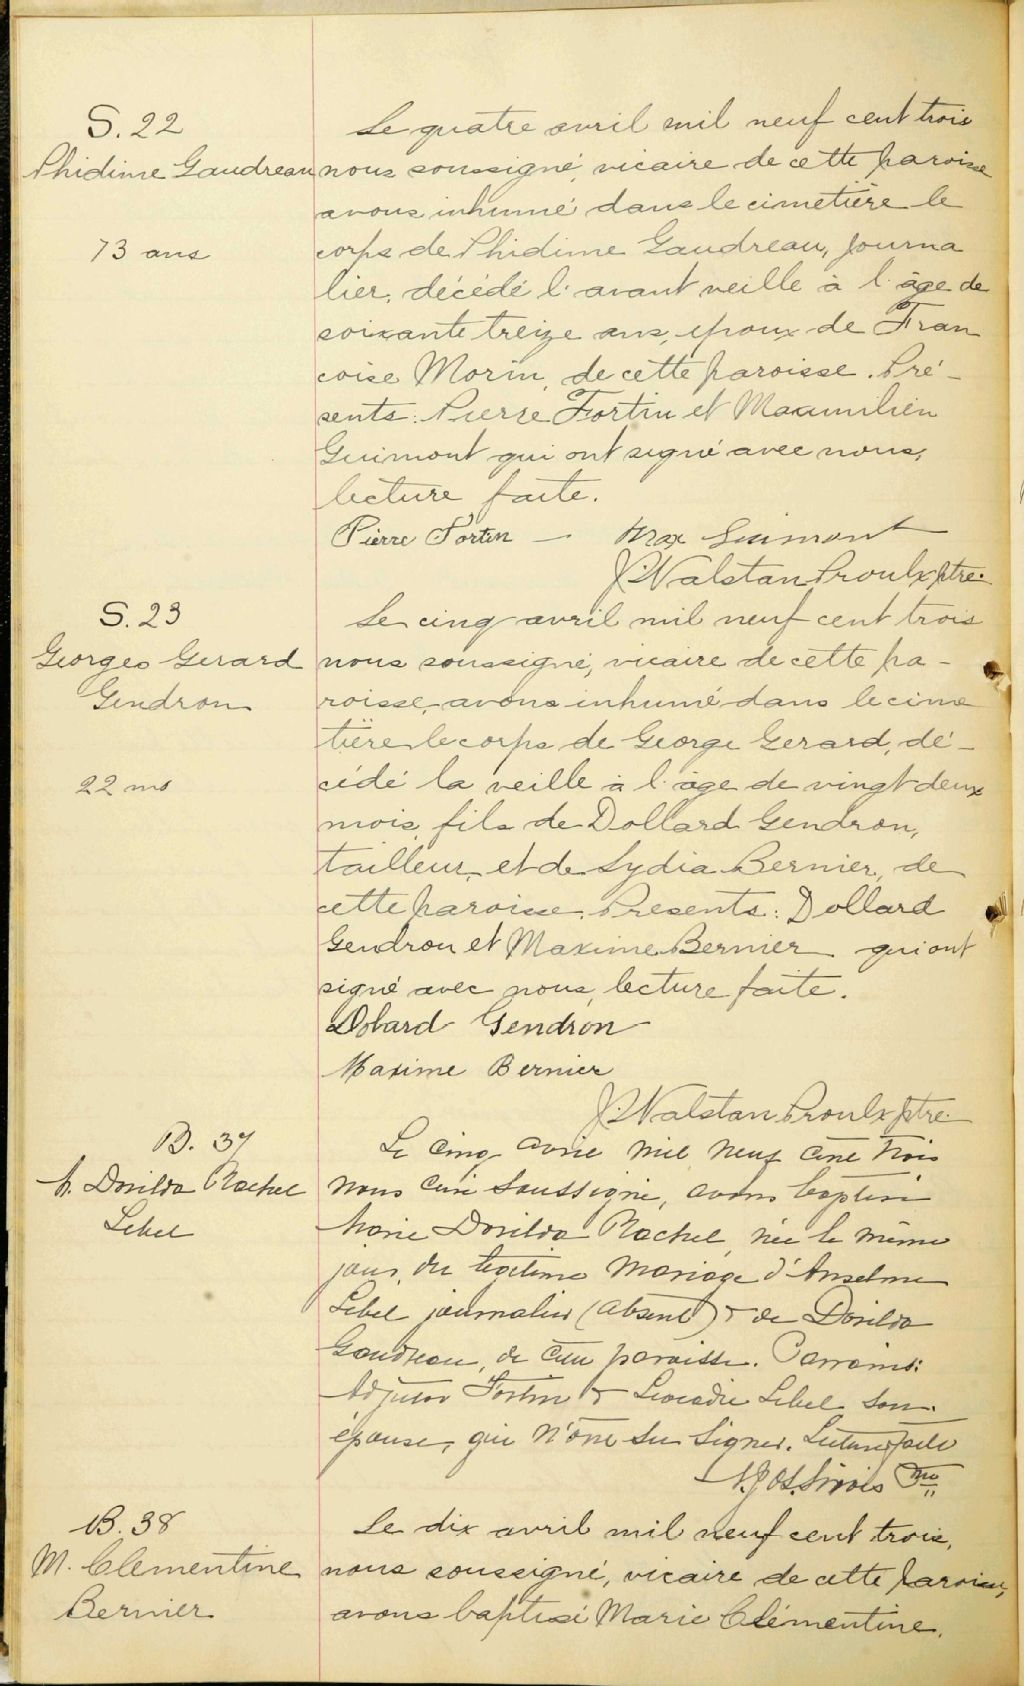 S. 22
Phidime Gaudreau
73 ans
Le quatre avril mil neuf cent trois
nous soussigné, vicaire de cette paroisse
avons inhumé dans le cimetière le
corps de Phidime Gaudreau, journa
lier, décédé l'avant veille à l'âge de
soixante treize ans, epoux de Fran
coise Morin, de cette paroisse. Pré-
sents: Pierre Fortin et Maximilien
Guimont qui ont signé avec nous,
lecture faite.
Pierre Fortin — Max Guimont
J. Walstan Proulx ptre.
S. 23
Georges Gerard
Gendron
22 ms
Le cinq avril mil neuf cent trois
nous soussigné, vicaire de cette pa-
roisse, avons inhumé dans le cime
tière le corps de George Gerard, dé-
cédé la veille à l'âge de vingt deux
mois, fils de Dollard Gendron,
tailleur, et de Lydia Bernier, de
cette paroisse. Presents: Dollard
Gendron et Maxime Bernier qui ont
signé avec nous, lecture faite.
Dolard Gendron
Maxime Bernier
J. Walstan Proulx ptre.
B. 37
M. Dorilda Rachel
Lebel
Le cinq avril mil neuf cent trois
nous curé soussigné, avons baptisé
Marie Dorilda Rachel, née le même
jour, du légitime mariage d'Anselme
Lebel journalier (absent) & de Dorilda
Gaudreau, de cette paroisse. Parrains:
Adjutor Fortin & Leocadie Lebel son
épouse, qui n'ont su signer. Lecture faite
Sirois Ptre
B. 38
M. Clementine
Bernier
Le dix avril mil neuf cent trois,
nous soussigné, vicaire de cette paroisse,
avons baptisé Marie Clémentine,